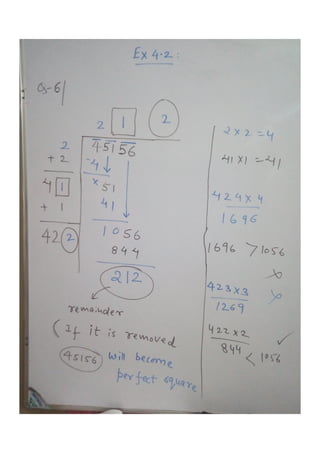 Ex 4.2 :
Q-6/
2 1 2
2 45156
+ 2 -4
41 × 51
+ 1 41
422 1056
844
212
remainder
(If it is removed
45156 will become
perfect square
2 × 2 = 4
41 × 1 = 41
424 × 4
1696
1696 > 1056
×
423 × 3 ×
1269
422 × 2 ✓
844 < 1056